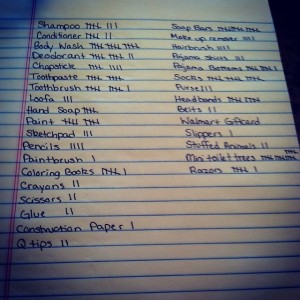 Shampoo 卌 |||
Conditioner 卌 ||
Body Wash 卌 卌 卌
Deodorant 卌 卌 ||
Chapstick 卌 ||||
Toothpaste 卌 卌
Toothbrush 卌 卌 |
Loofa |||
Hand Soap 卌
Paint 卌 |||
Sketchpad |||
Pencils ||||
Paintbrush |
Coloring Books 卌 |
Crayons ||
Scissors ||
Glue ||
Construction Paper |
Q tips ||
Soap Bars 卌 卌 卌
Make up remover ||||
Hairbrush ||||
Pajama Shirts |||
Pajama Bottoms 卌 卌 |
Socks 卌 卌 卌
Purse |||
Headbands 卌 卌
Belts ||
Walmart Giftcard
Slippers |
Stuffed Animals ||
Mini toilet trees
Razors 卌 |